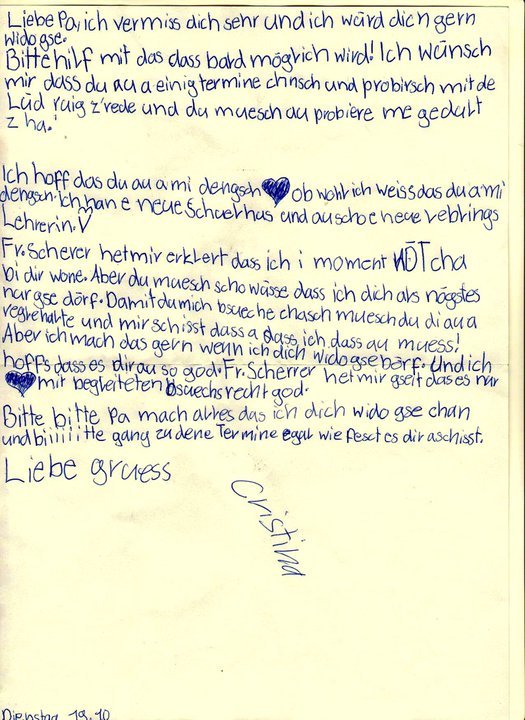 Liebe Pa, ich vermiss dich sehr und ich würd dich gern
wido gse.
Bitte hilf mit das dass bard möglich wird! Ich wünsch
mir dass du au a einig termine chnsch und probirsch mit de
Lüd ruig z'rede und du muesch au probiere me gedult
z ha.!
Ich hoff das du au a mi dengsch ♥ ob wohl ich weiss das du a mi
dengsch. Ich han e neue Schuel hus und au scho e neue
Lehrerin.
Fr. Scherer het mir erklert dass ich i moment NÖT cha
bi dir wone. Aber du muesch scho wüsse dass ich dich als nögstes
nur gse dörf. Damit du mich bsueche chasch muesch du di au a
regle halte und mir schisst dass a dass ich dass au muess!
Aber ich mach das gern wenn ich dich wido gse börf. Und ich
hoffs dass es dir au so god. Fr. Scherrer het mir gseit das es nur
♥ mit begleiteten bsuechsrecht god.
Bitte bitte Pa mach alles das ich dich wido gse chan
und biiiiiitte gang zu dene Termine egal wie fescht es dir aschisst.
Liebe gruess
Cristina
Dienstag 19.10